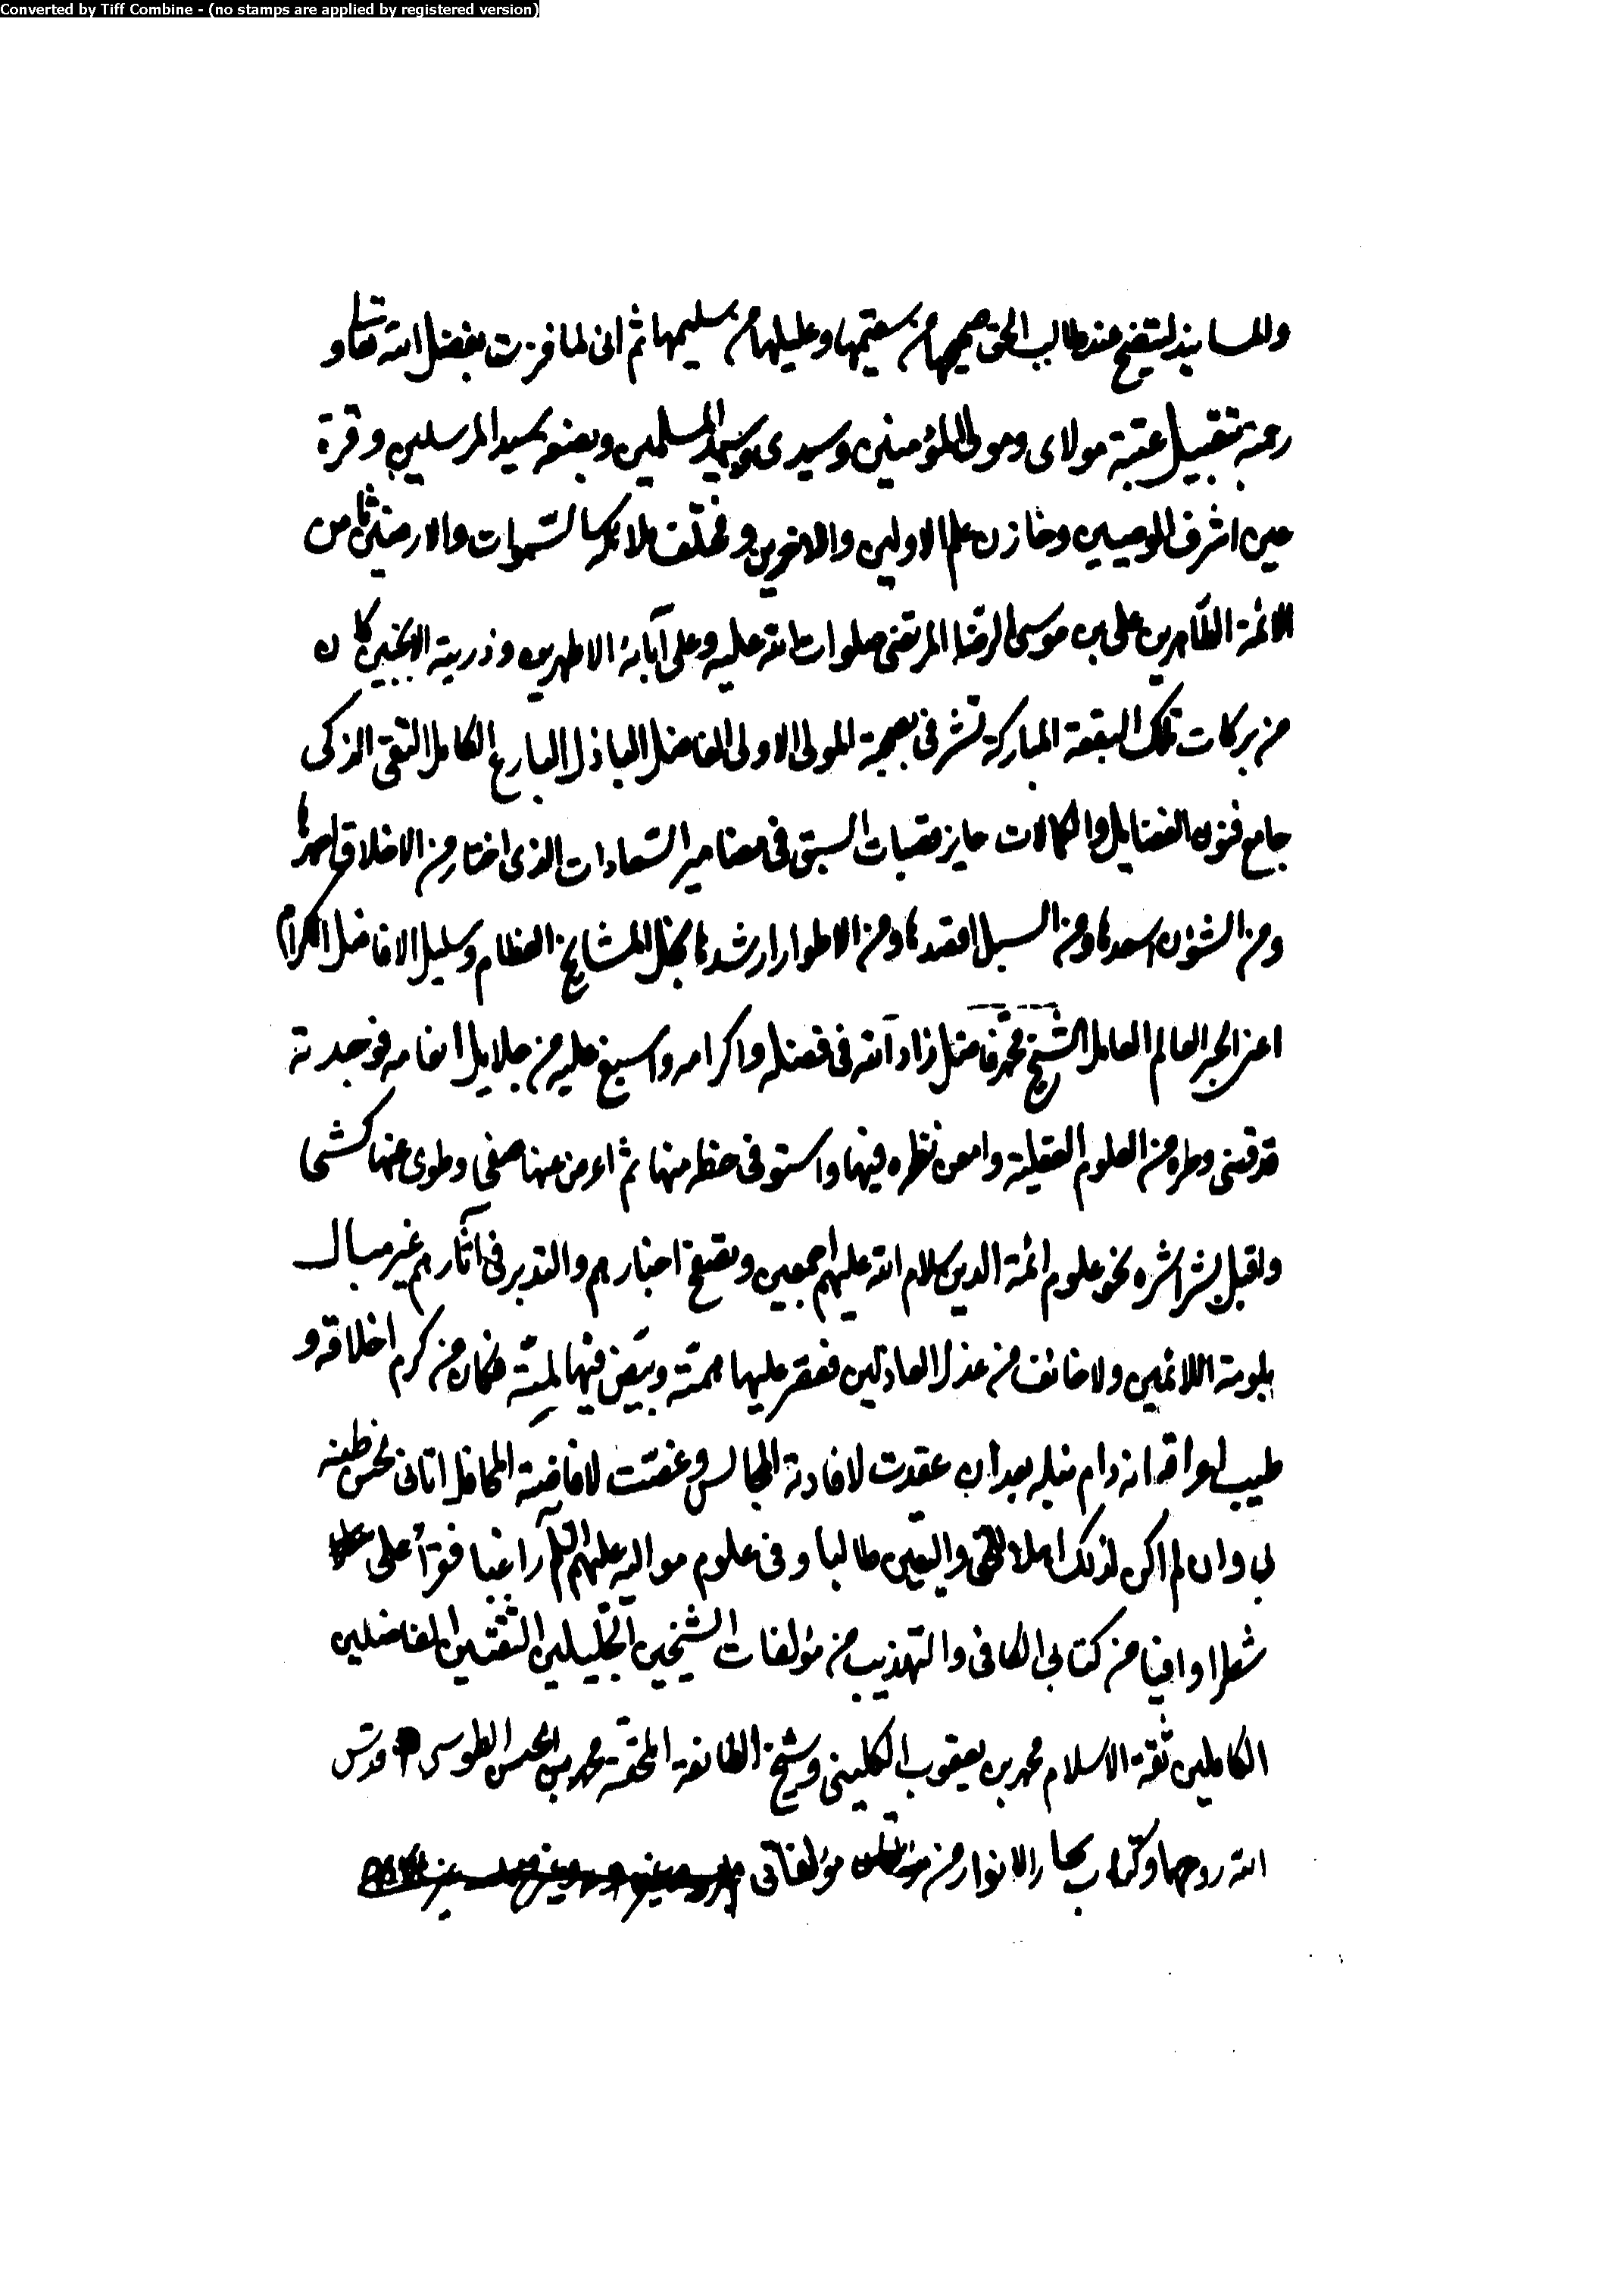 Converted by Tiff Combine - (no stamps are applied by registered version)
والمسانيد ليتضح عند طالب الحق صحيحها من سقيمها وعليلها من سليمها ثم انى لما فزت بفضل الله تعالى و
رحمته بتقبيل عتبة مولاى ومولى المؤمنين وسيدى وسيد المسلمين وبضعة سيد المرسلين وقرة
عين اشرف الوصيين وخازن علم الاولين والاخرين ومختلف ملائكة السموات والارضين ثامن
الائمة الطاهرين على بن موسى الرضا المرتضى صلوات الله عليه وعلى آبائه الاطهرين وذريته الانجبين كان
من بركات تلك البقعة المباركة تشرفى بصحبة المولى الاولى الفاضل الباذل البارع الكامل التقى الذكى
جامع فنون الفضايل والكمالات حايز قصبات السبق فى مضامير السعادات الذى اختار من الاخلاق احمدها
ومن الشؤن اسعدها ومن السبل اقصدها ومن الاطوار ارشدها نجل المشايخ العظام وسليل الافاضل الكرام
اعنى الحبر العالم العامل الشيخ محمد فاضل زاد الله فى فضله واكرامه واسبغ عليه من جلايل انعامه فوجدته
قد قضى وطره من العلوم العقلية وامعن نظره فيها واستوفى حظه منها ثم اعرض عنها صفحا وطوى عنها كشحا
واقبل بشراشره نحو علوم ائمة الدين سلام الله عليهم اجمعين وتصفح اخبارهم والتدبر فى آثارهم غير مبال
بلومة اللائمين ولا خائف من عذل العاذلين فقصر عليها همته وبيض فيها لمته فكان من كرم اخلاقه و
طيب اعراقه انه دام فضله بعد ان عقدت لافادته المجالس وغصت لافاضته المحافل اتانى لحسن ظنه
بى وان لم اكن لذلك اهلا للحق واليقين طالبا وفى علوم مواليه عليهم السلم راغبا فقرأ على
شطرا وافيا من كتابى الكافى والتهذيب من مؤلفات الشيخين الجليلين الثقتين الفاضلين
الكاملين ثقة الاسلام محمد بن يعقوب الكلينى وشيخ الطائفة المحقة محمد بن الحسن الطوسى قدس
الله روحهما وكتاب بحار الانوار من مؤلفاتى